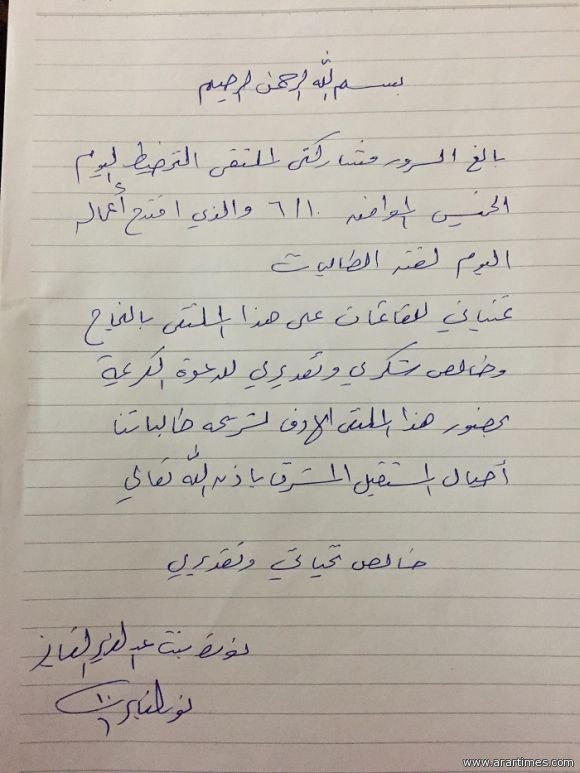 بسم الله الرحمن الرحيم
بالغ السرور مشاركتي الملتقى التخطيط اليوم
الخميس الموافق ٦/١٠ والذي افتتح أعماله
اليوم لفئة الطالبات
تمنياتي للقائمات على هذا الملتقى بالنجاح
وخالص شكري وتقديري للدعوة الكريمة
بحضور هذا الملتقى الهادف لشريحة طالباتنا
أجيال المستقبل المشرق باذن الله تعالى
خالص تحياتي وتقديري
بنت عبدالعزيز
١٠/٦
www.arartimes.com